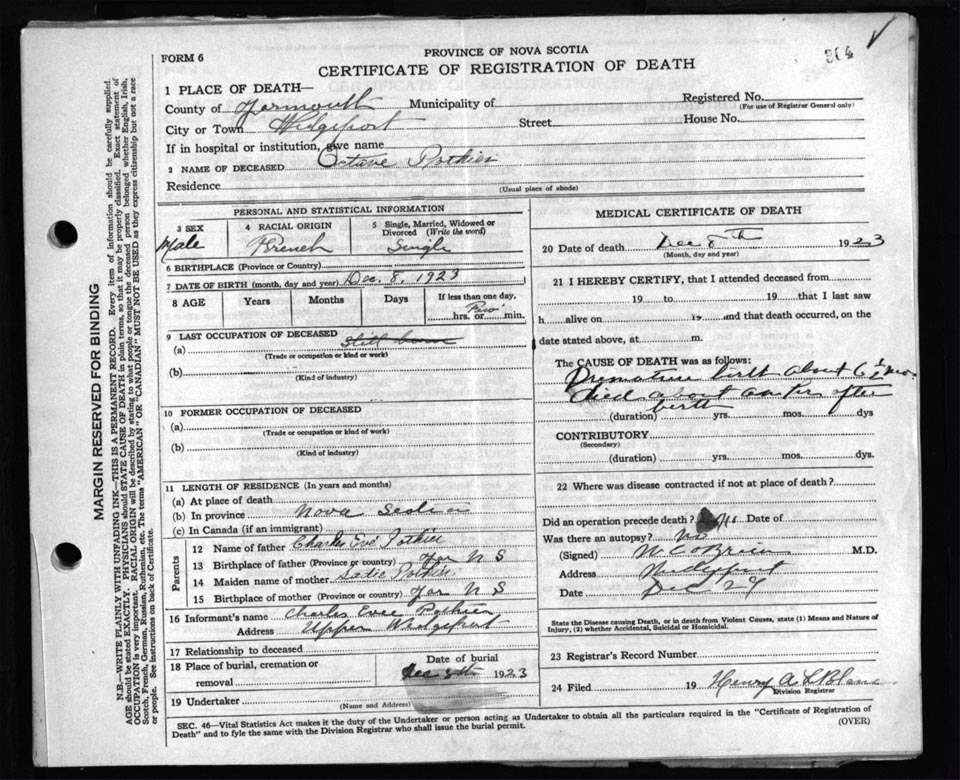 FORM 6
PROVINCE OF NOVA SCOTIA
CERTIFICATE OF REGISTRATION OF DEATH
304
1 PLACE OF DEATH—
County of Yarmouth Municipality of
Registered No.
(For use of Registrar General only)
City or Town Wedgeport Street House No.
If in hospital or institution, give name
2 NAME OF DECEASED Octave Pothier
Residence
(Usual place of abode)
MARGIN RESERVED FOR BINDING
N.B.—WRITE PLAINLY WITH UNFADING INK—THIS IS A PERMANENT RECORD. Every item of information should be carefully supplied.
AGE should be stated EXACTLY. PHYSICIANS should STATE CAUSE OF DEATH in plain terms, so that it may be properly classified. Exact statement of
OCCUPATION is very important. RACIAL ORIGIN will be described by stating to what people or tongue the deceased person belonged whether English, Irish,
Scotch, French, German, Russian, Ruthenian, etc. The terms "AMERICAN" OR "CANADIAN" MUST NOT BE USED as they express citizenship but not a race
or people. See instructions on back of Certificate.
PERSONAL AND STATISTICAL INFORMATION
3 SEX
Male
4 RACIAL ORIGIN
French
5 Single, Married, Widowed or
Divorced (Write the word)
Single
6 BIRTHPLACE (Province or Country)
7 DATE OF BIRTH (month, day and year) Dec. 8, 1923
8 AGE Years Months Days
If less than one day,
hrs. or min.
9 LAST OCCUPATION OF DECEASED
(a) still born
(Trade or occupation or kind or work)
(b)
(Kind of industry)
10 FORMER OCCUPATION OF DECEASED
(a)
(Trade or occupation or kind of work)
(b)
(Kind of industry)
11 LENGTH OF RESIDENCE (In years and months)
(a) At place of death
(b) In province Nova Scotia
(c) In Canada (if an immigrant)
Parents
12 Name of father Charles Eve Pothier
13 Birthplace of father (Province or country) Yar N S
14 Maiden name of mother Sadie Pothier
15 Birthplace of mother (Province or country) Yar N S
16 Informant's name Charles Evee Pothier
Address Upper Wedgeport
17 Relationship to deceased
18 Place of burial, cremation or
removal
Date of burial
Dec 8th 1923
19 Undertaker
(Name and Address)
MEDICAL CERTIFICATE OF DEATH
20 Date of death Dec 8th 1923
(Month, day and year)
21 I HEREBY CERTIFY, that I attended deceased from
19 to 19 that I last saw
h alive on 19 and that death occurred, on the
date stated above, at m.
The CAUSE OF DEATH was as follows:
Premature birth about 6½ mos
died about an hr after
birth
(duration) yrs. mos. dys
CONTRIBUTORY
(Secondary)
(duration) yrs. mos. dys.
22 Where was disease contracted if not at place of death?
Did an operation precede death? Date of
Was there an autopsy? No
(Signed) W C O'Brien M.D.
Address Wedgeport
Date Dec 29
State the Disease causing Death, or in death from Violent Causes, state (1) Means and Nature of
Injury, (2) whether Accidental, Suicidal or Homicidal.
23 Registrar's Record Number
24 Filed 19 Henry A LeBlanc
Division Registrar
SEC. 46—Vital Statistics Act makes it the duty of the Undertaker or person acting as Undertaker to obtain all the particulars required in the "Certificate of Registration of
Death" and to fyle the same with the Division Registrar who shall issue the burial permit.
(OVER)